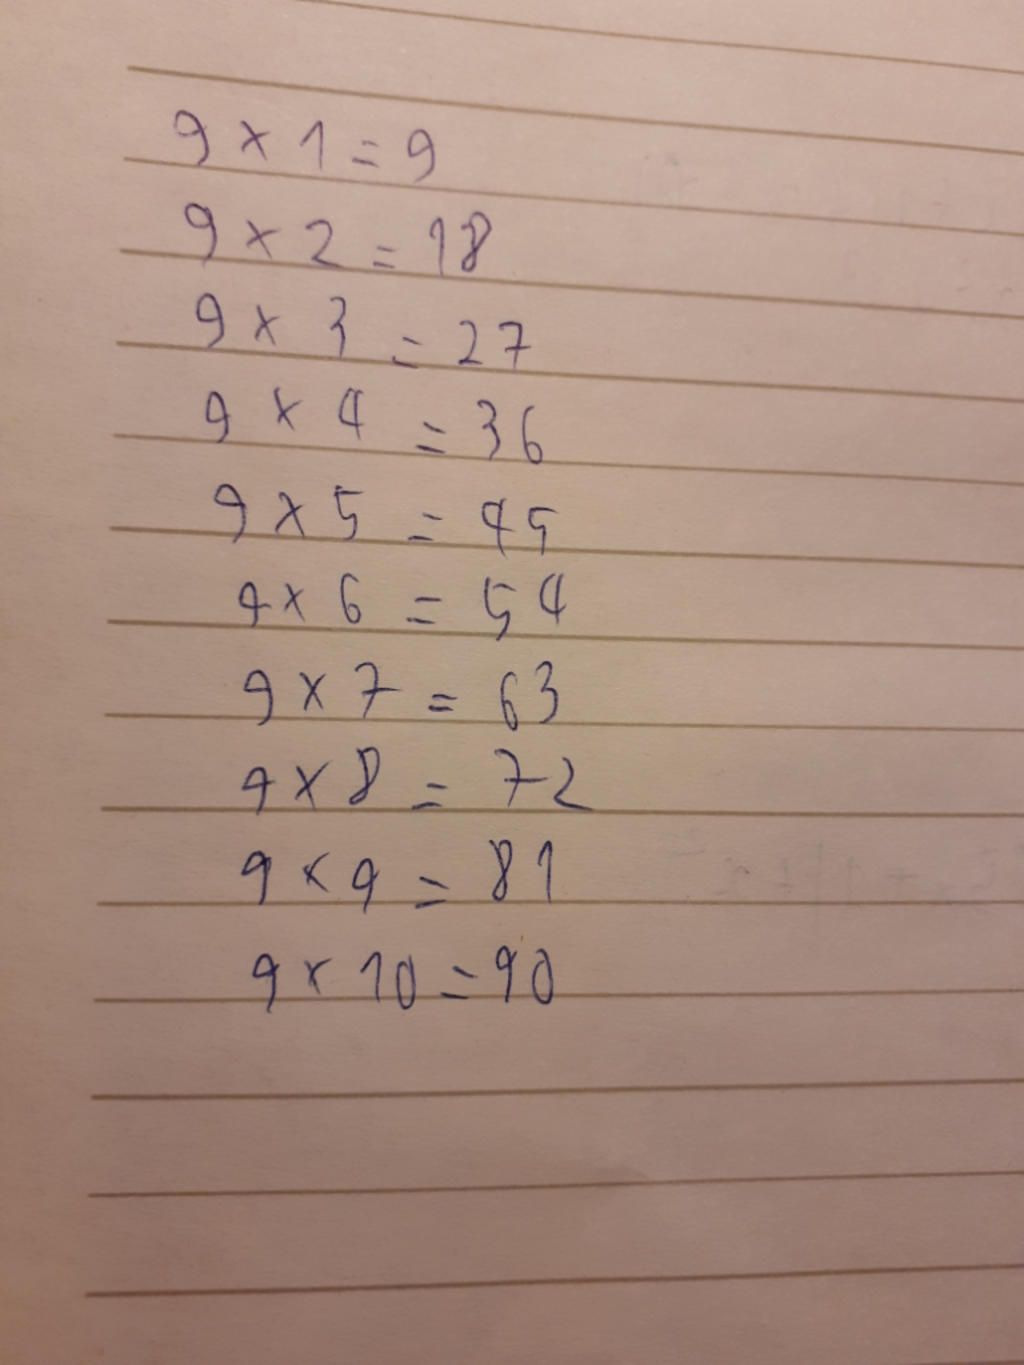 9 × 1 = 9
9 × 2 = 18
9 × 3 = 27
9 × 4 = 36
9 × 5 = 45
9 × 6 = 54
9 × 7 = 63
9 × 8 = 72
9 × 9 = 81
9 × 10 = 90